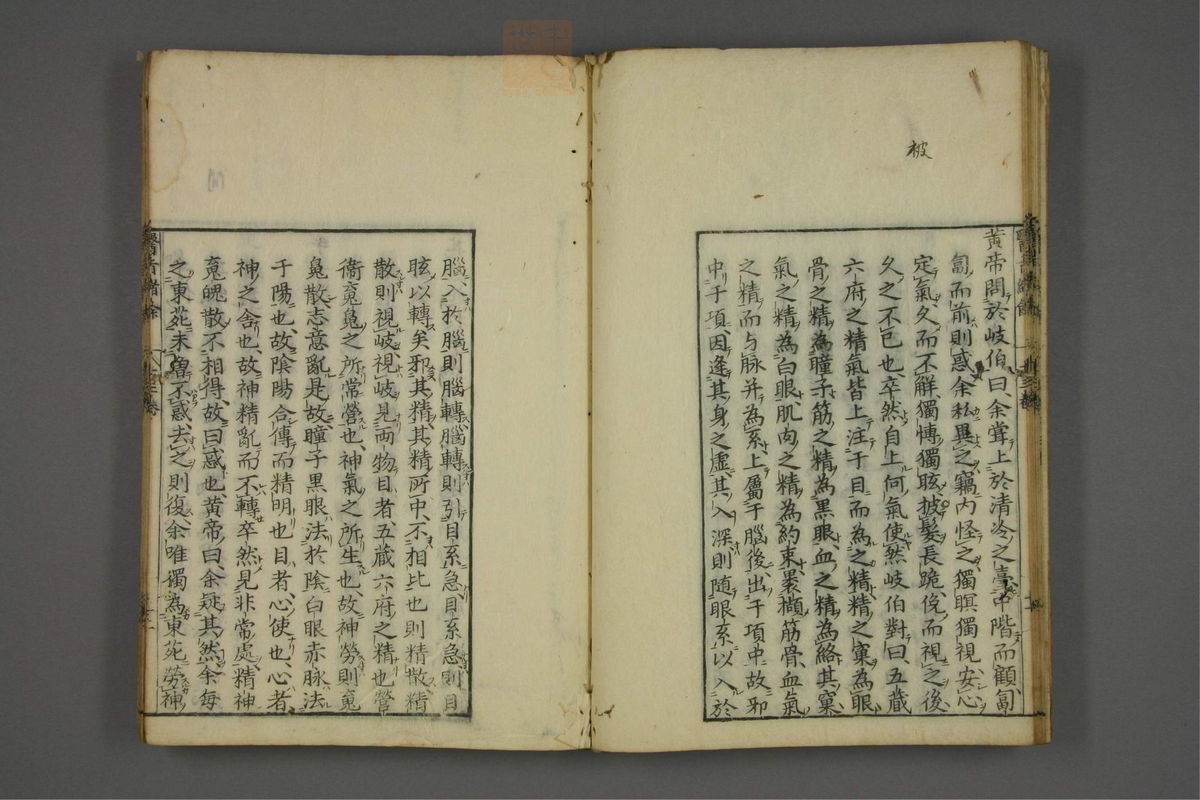 被
黄帝問於岐伯曰余嘗上於清冷之臺中階而顧匐
匐而前則惑余私異之竊内怪之獨瞑獨視安心
定氣久而不解獨慱獨眩披髮長跪俛而視之後
久之不已也卒然自上何氣使然岐伯對曰五蔵
六府之精氣皆上注于目而為之精精之窠為眼
骨之精為瞳子筋之精為黒眼血之精為絡其窠
氣之精為白眼肌肉之精為約束裹擷筋骨血氣
之精而与脉并為系上屬于腦後出于項中故邪
中于項因逢其身之虚其入深則随眼系以入於
腦入於腦則腦轉腦轉則引目系急目系急則目
眩以轉矣邪其精其精所中不相比也則精散精
散則視岐視岐見両物目者五蔵六府之精也營
衞䰟䰟之所常營也神氣之所生也故神勞則䰟
䰟散志意亂是故瞳子黒眼法於陰白眼赤脉法
于陽也故陰陽合傳而精明也目者心使也心者
神之舎也故神精亂而不轉卒然見非常處精神
䰟魄散不相得故曰惑也黄帝曰余疑其然余每
之東苑未曽不惑去之則復余唯獨為東苑勞神